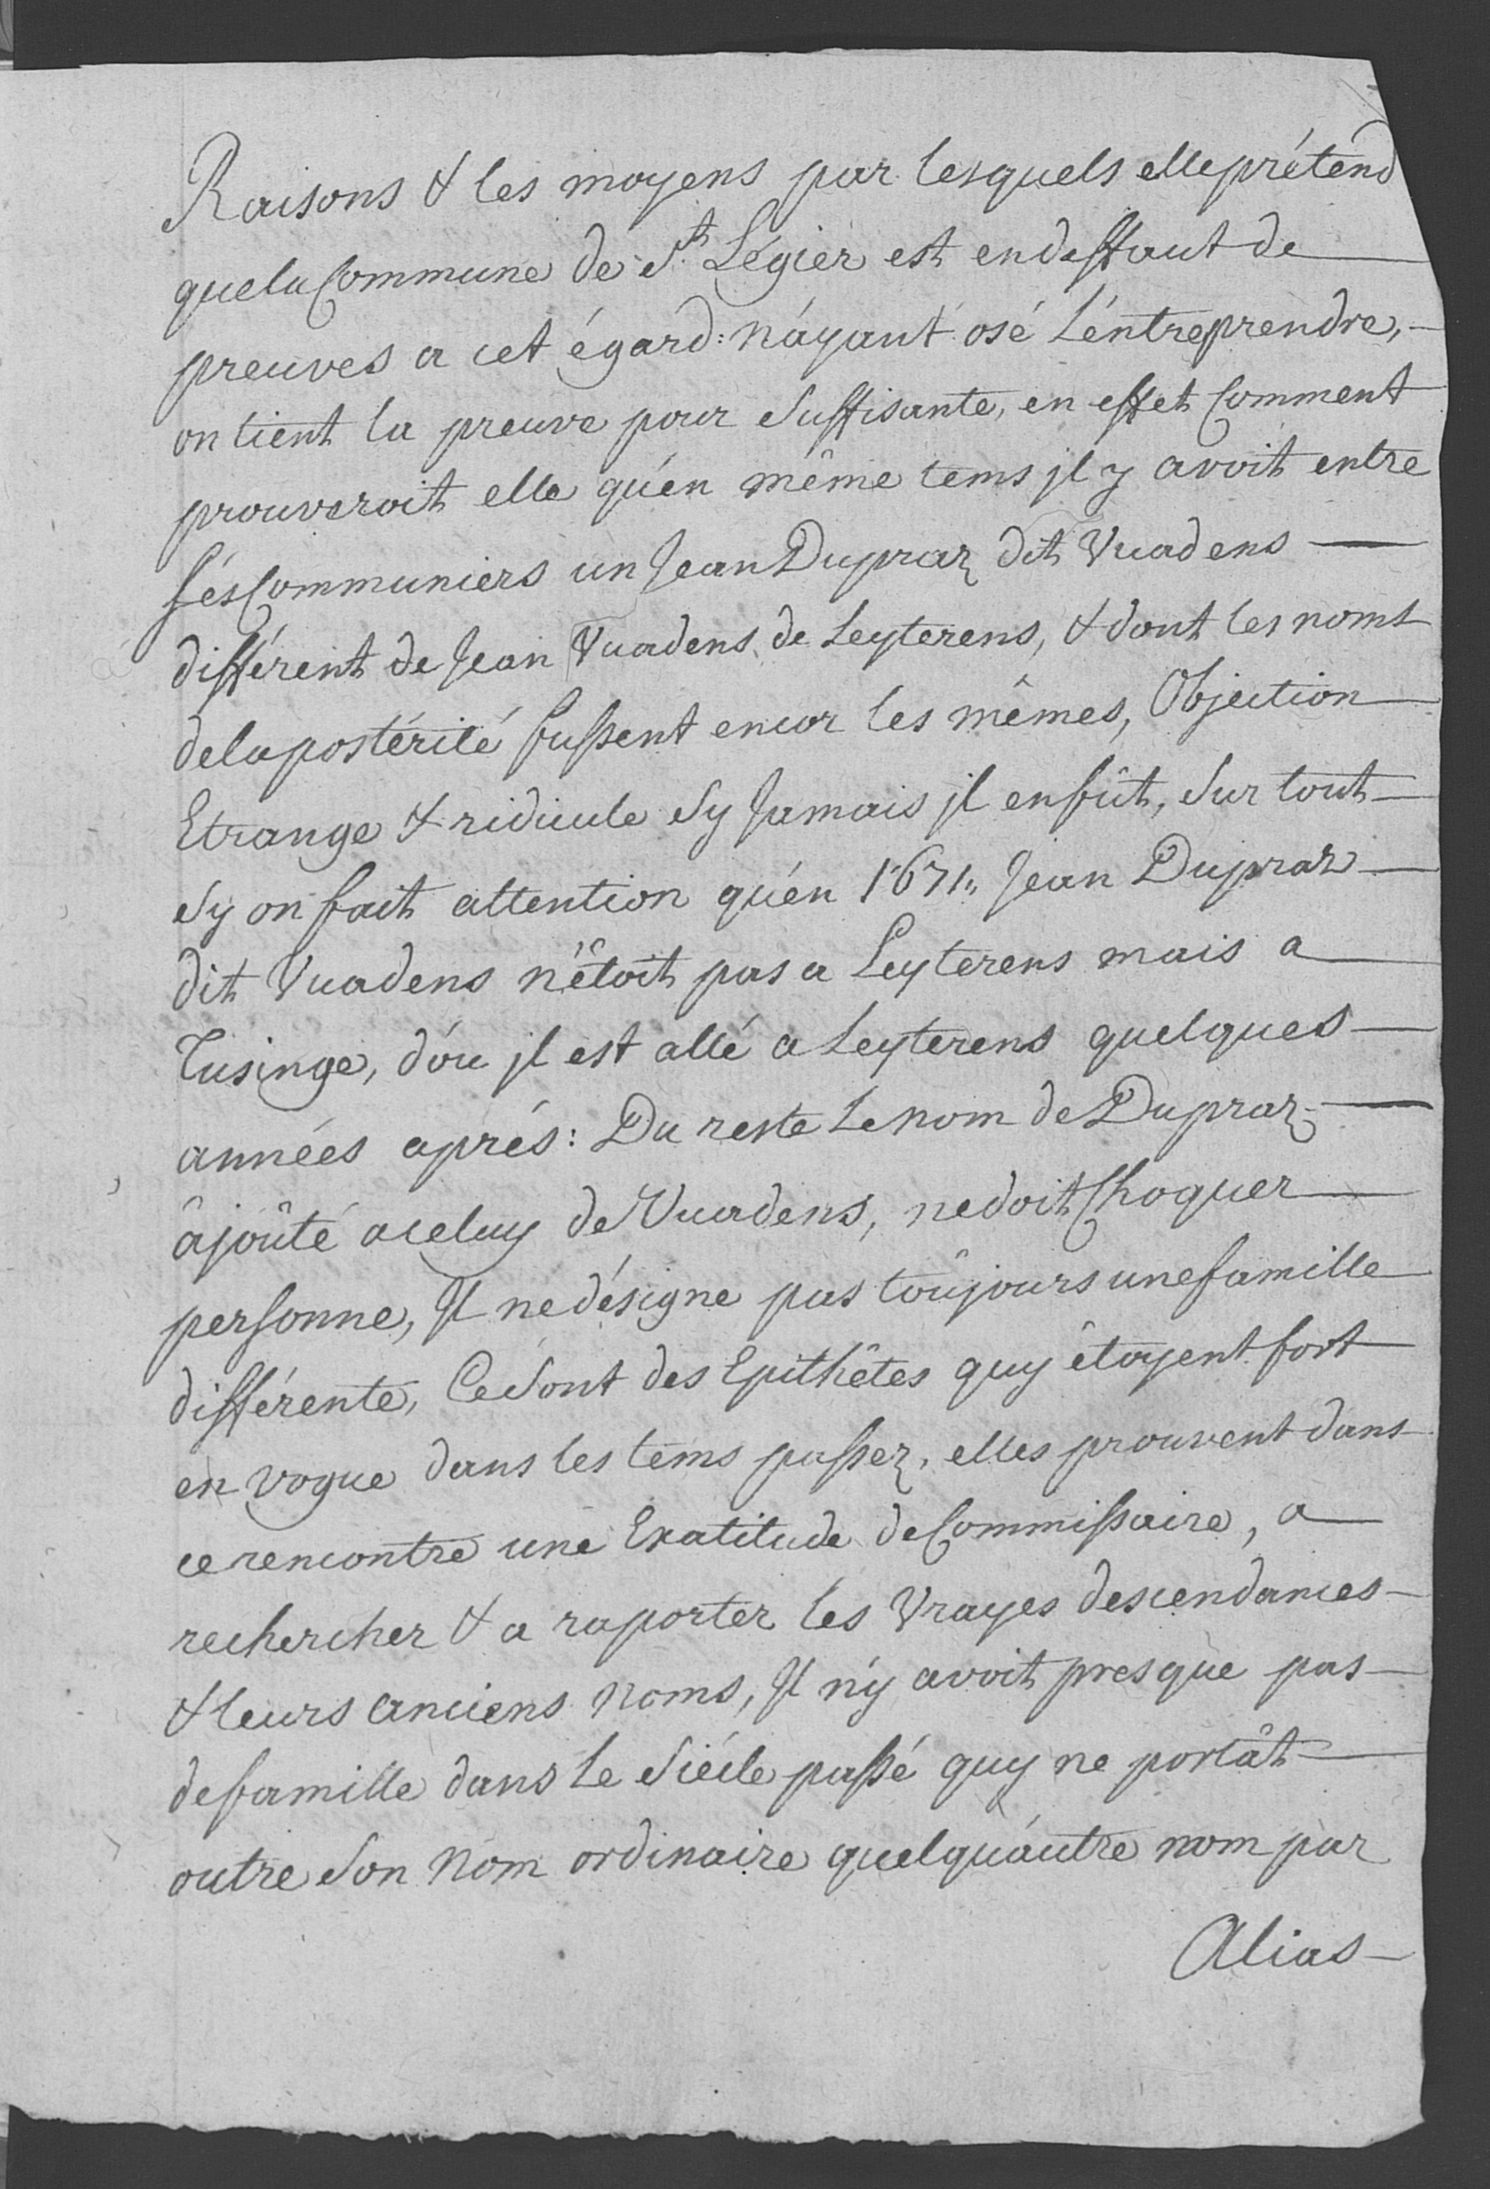 Raisons & les moyens par lesquels elle prétend
que la Commune de St. Légier est en deffaut de
preuves a cet égard: n'áyant osé L'éntreprendre,
on tient la preuve pour Suffisante, en effet Comment
prouveroit elle qu'én même tems jl y avoit entre
sés Communiers un Jean Dupraz dit Vuadens
différent de Jean Vuadens de Leyterens, & dont les noms
de la postérité fussent encor les mêmes, Objection
Etrange & ridicule Sy Jamais jl en fût, Sur tout
Sy on fait attention qu'én 1671,, Jean Dupraz
dit Vuadens n'étoit pas a Leyterens mais a
Tusinge, d'óu jl est allé a Leyterens quelques
années aprés: Du reste Le nom de Dupraz
âjoûté a celuy de Vuadens, ne doit Choquer
personne, Jl ne désigne pas toûjours une famille
différente, Ce Sont des Epithêtes quy êtoyent fort
en vogue dans les tems passez, elles prouvent dans
ce rencontre une Exatitude de Commissaire, a
rechercher & a raporter les Vrayes descendances
& leurs anciens noms, Jl n'y avoit presque pas
de famille dans Le Siécle passé quy ne portât
outre Son Nom ordinaire quelqu'áutre nom par
Alias